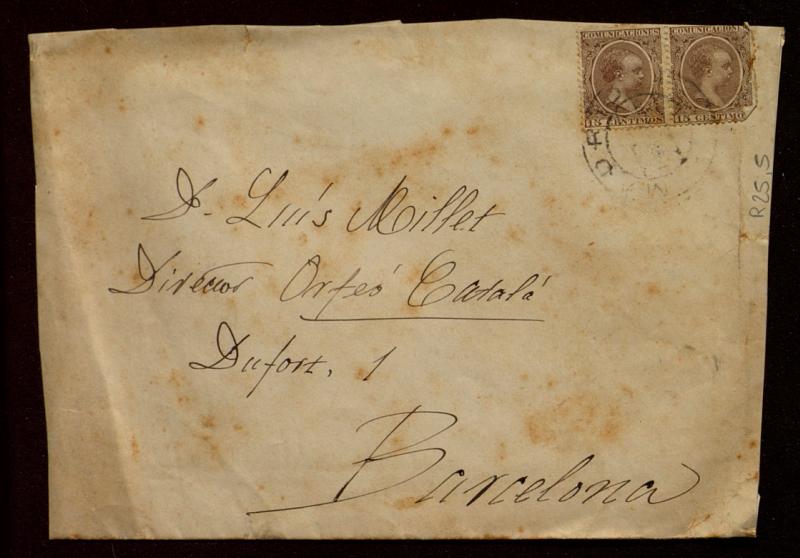 COMUNICACIONES COMUNICACIONES
15 CENTIMOS 15 CENTIMO
R25,5
D. Luís Millet
Director Orfeó Catalá
Dufort, 1
Barcelona